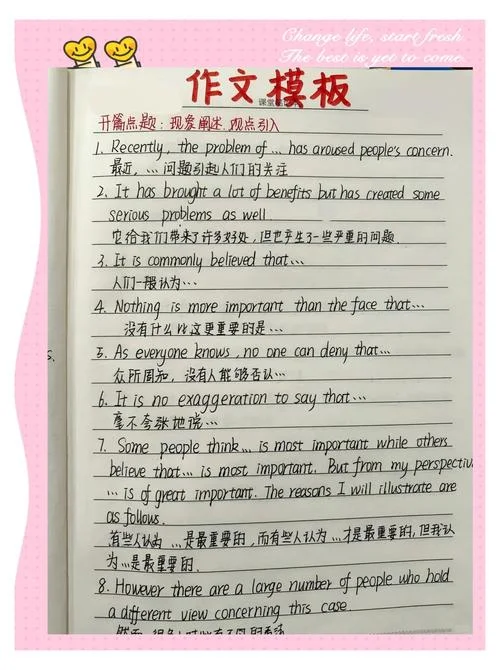 Change life, start fresh.
The best is yet to come
作文模板
开篇点题：现象阐述，观点引入
1. Recently, the problem of ... has aroused people's concern.
最近，... 问题引起人们的关注
2. It has brought a lot of benefits but has created some
serious problems as well.
它给我们带来了许多好处，但也产生了一些严重的问题.
3. It is commonly believed that...
人们一般认为...
4. Nothing is more important than the face that...
没有什么比这更重要的是...
5. As everyone knows, no one can deny that...
众所周知，没有人能够否认...
6. It is no exaggeration to say that...
毫不夸张地说...
7. Some people think... is most important while others
believe that... is most important. But from my perspectiv
... is of great important. The reasons I will illustrate are
as follows.
有些人认为 ...是最重要的，而有些人认为 ...才是最重要的，但我认
为...是最重要的.
8. However there are a large number of people who hold
a different view concerning this case.